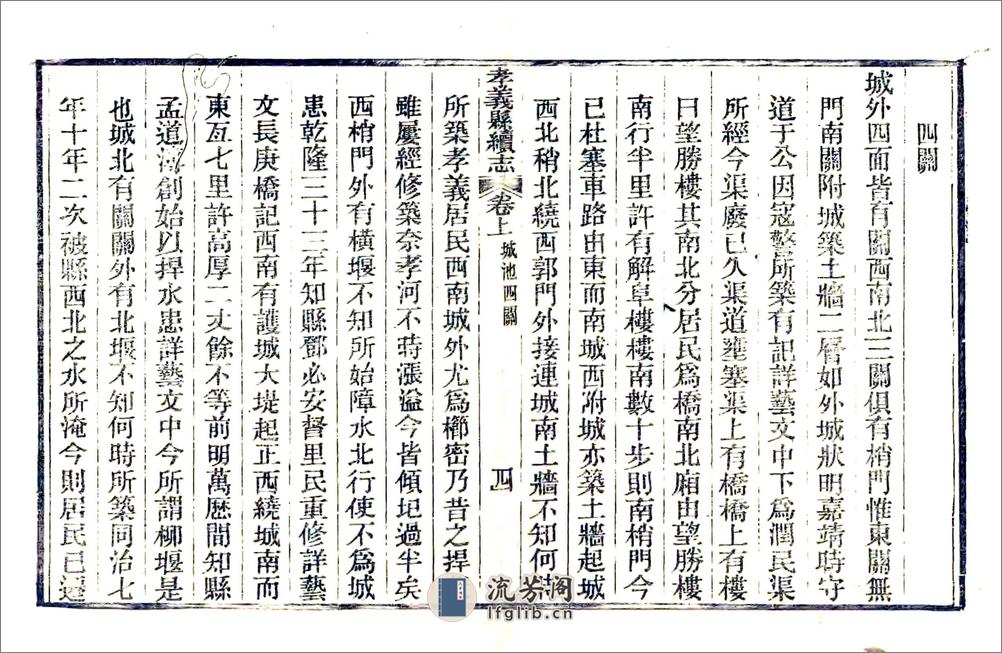 四關
城外四面皆有關西南北三關俱有梢門惟東關無
門南關附城築土牆二層如外城狀明嘉靖時守
道于公因寇警所築有記詳藝文中下爲潤民渠
所經今渠廢已久渠道壅塞渠上有橋橋上有樓
曰望勝樓其南北分居民爲橋南北廂由望勝樓
南行半里許有解阜樓樓南數十步則南梢門今
已杜塞車路由東而南城西附城亦築土牆起城
西北稍北繞西郭門外接連城南土牆不知何
孝義縣續志 卷上 城池四關 四
所築孝義居民西南城外尤爲櫛密乃昔之捍
雖屢經修築奈孝河不時漲溢今皆傾圮過半矣
西梢門外有橫堰不知所始障水北行使不爲城
患乾隆三十三年知縣鄧必安督里民重修詳藝
文長庚橋記西南有護城大堤起正西繞城南而
東亙七里許高厚二丈餘不等前明萬歷間知縣
孟道溥創始以捍水患詳藝文中今所謂柳堰是
也城北有關關外有北堰不知何時所築同治七
年十年二次被縣西北之水所淹今則居民已
流芳阁
lfglib.cn